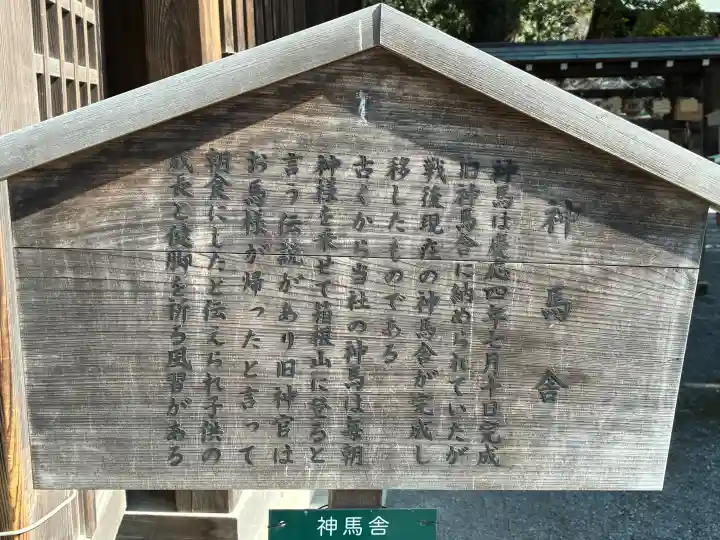 神馬舎
神馬は慶応四年七月十日完成
旧神馬舎に納められていたが
戦後現在の神馬舎が完成し
移したものである
古くから当社の神馬は毎朝
神様を乗せて箱根山に登ると
言う伝説があり旧神官は
お馬様が帰ったと言って
朝食にしたと伝えられ子供の
成長と健脚を祈る風習がある
神馬舎